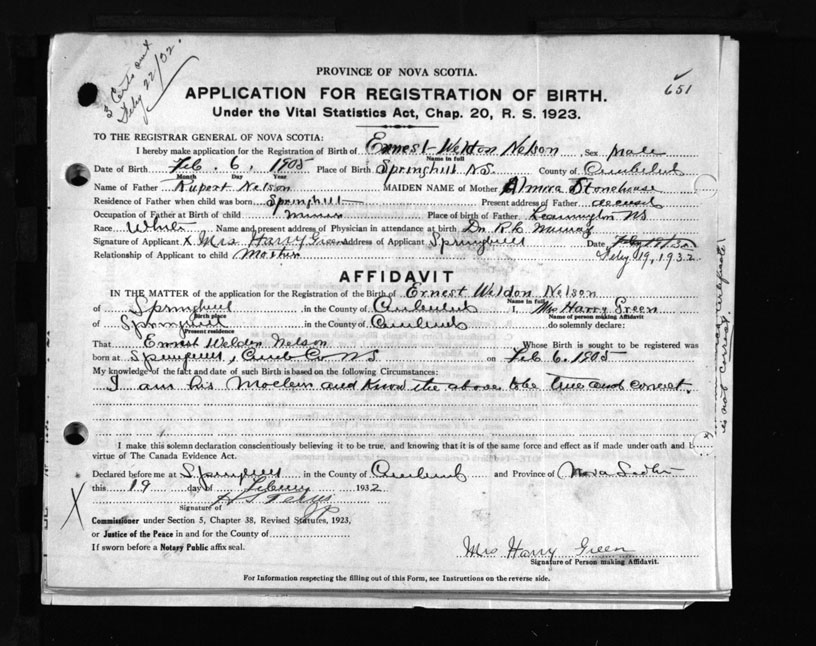 3 Certs
Feby 22/32.
651
PROVINCE OF NOVA SCOTIA.
APPLICATION FOR REGISTRATION OF BIRTH.
Under the Vital Statistics Act, Chap. 20, R. S. 1923.
TO THE REGISTRAR GENERAL OF NOVA SCOTIA:
I hereby make application for the Registration of Birth of Ernest Weldon Nelson Sex Male
Name in full
Date of Birth Feb. 6, 1905 Place of Birth Springhill N.S. County of Cumberland
Month Day Year
Name of Father Rupert Nelson MAIDEN NAME of Mother Almira Stonehouse
Residence of Father when child was born Springhill Present address of Father deceased
Occupation of Father at Birth of child Miner Place of birth of Father Leamington NS
Race White Name and present address of Physician in attendance at birth Dr. R. L. Murray
Signature of Applicant X Mrs Harry Green Address of Applicant Springhill Date
Relationship of Applicant to child Mother Feby 19, 1932
AFFIDAVIT
IN THE MATTER of the application for the Registration of the Birth of Ernest Weldon Nelson
Name in full
of Springhill in the County of Cumberland I, Mrs Harry Green
Birth place Name of person making Affidavit
of Springhill in the County of Cumberland do solemnly declare:
Present residence
That Ernest Weldon Nelson Whose Birth is sought to be registered was
born at Springhill, Cumb Co NS on Feb 6. 1905
My knowledge of the fact and date of such Birth is based on the following Circumstances:
I am his Mother and Know the above to be true and correct.
I make this solemn declaration conscientiously believing it to be true, and knowing that it is of the same force and effect as if made under oath and
virtue of The Canada Evidence Act.
Declared before me at Springhill in the County of Cumberland and Province of Nova Scotia
this 19 day of February 1932
Signature of JP
X
Commissioner under Section 5, Chapter 38, Revised Statutes, 1923,
or Justice of the Peace in and for the County of
If sworn before a Notary Public affix seal.
Mrs Harry Green
Signature of Person making Affidavit.
For Information respecting the filling out of this Form, see Instructions on the reverse side.
certificate
is not correct.